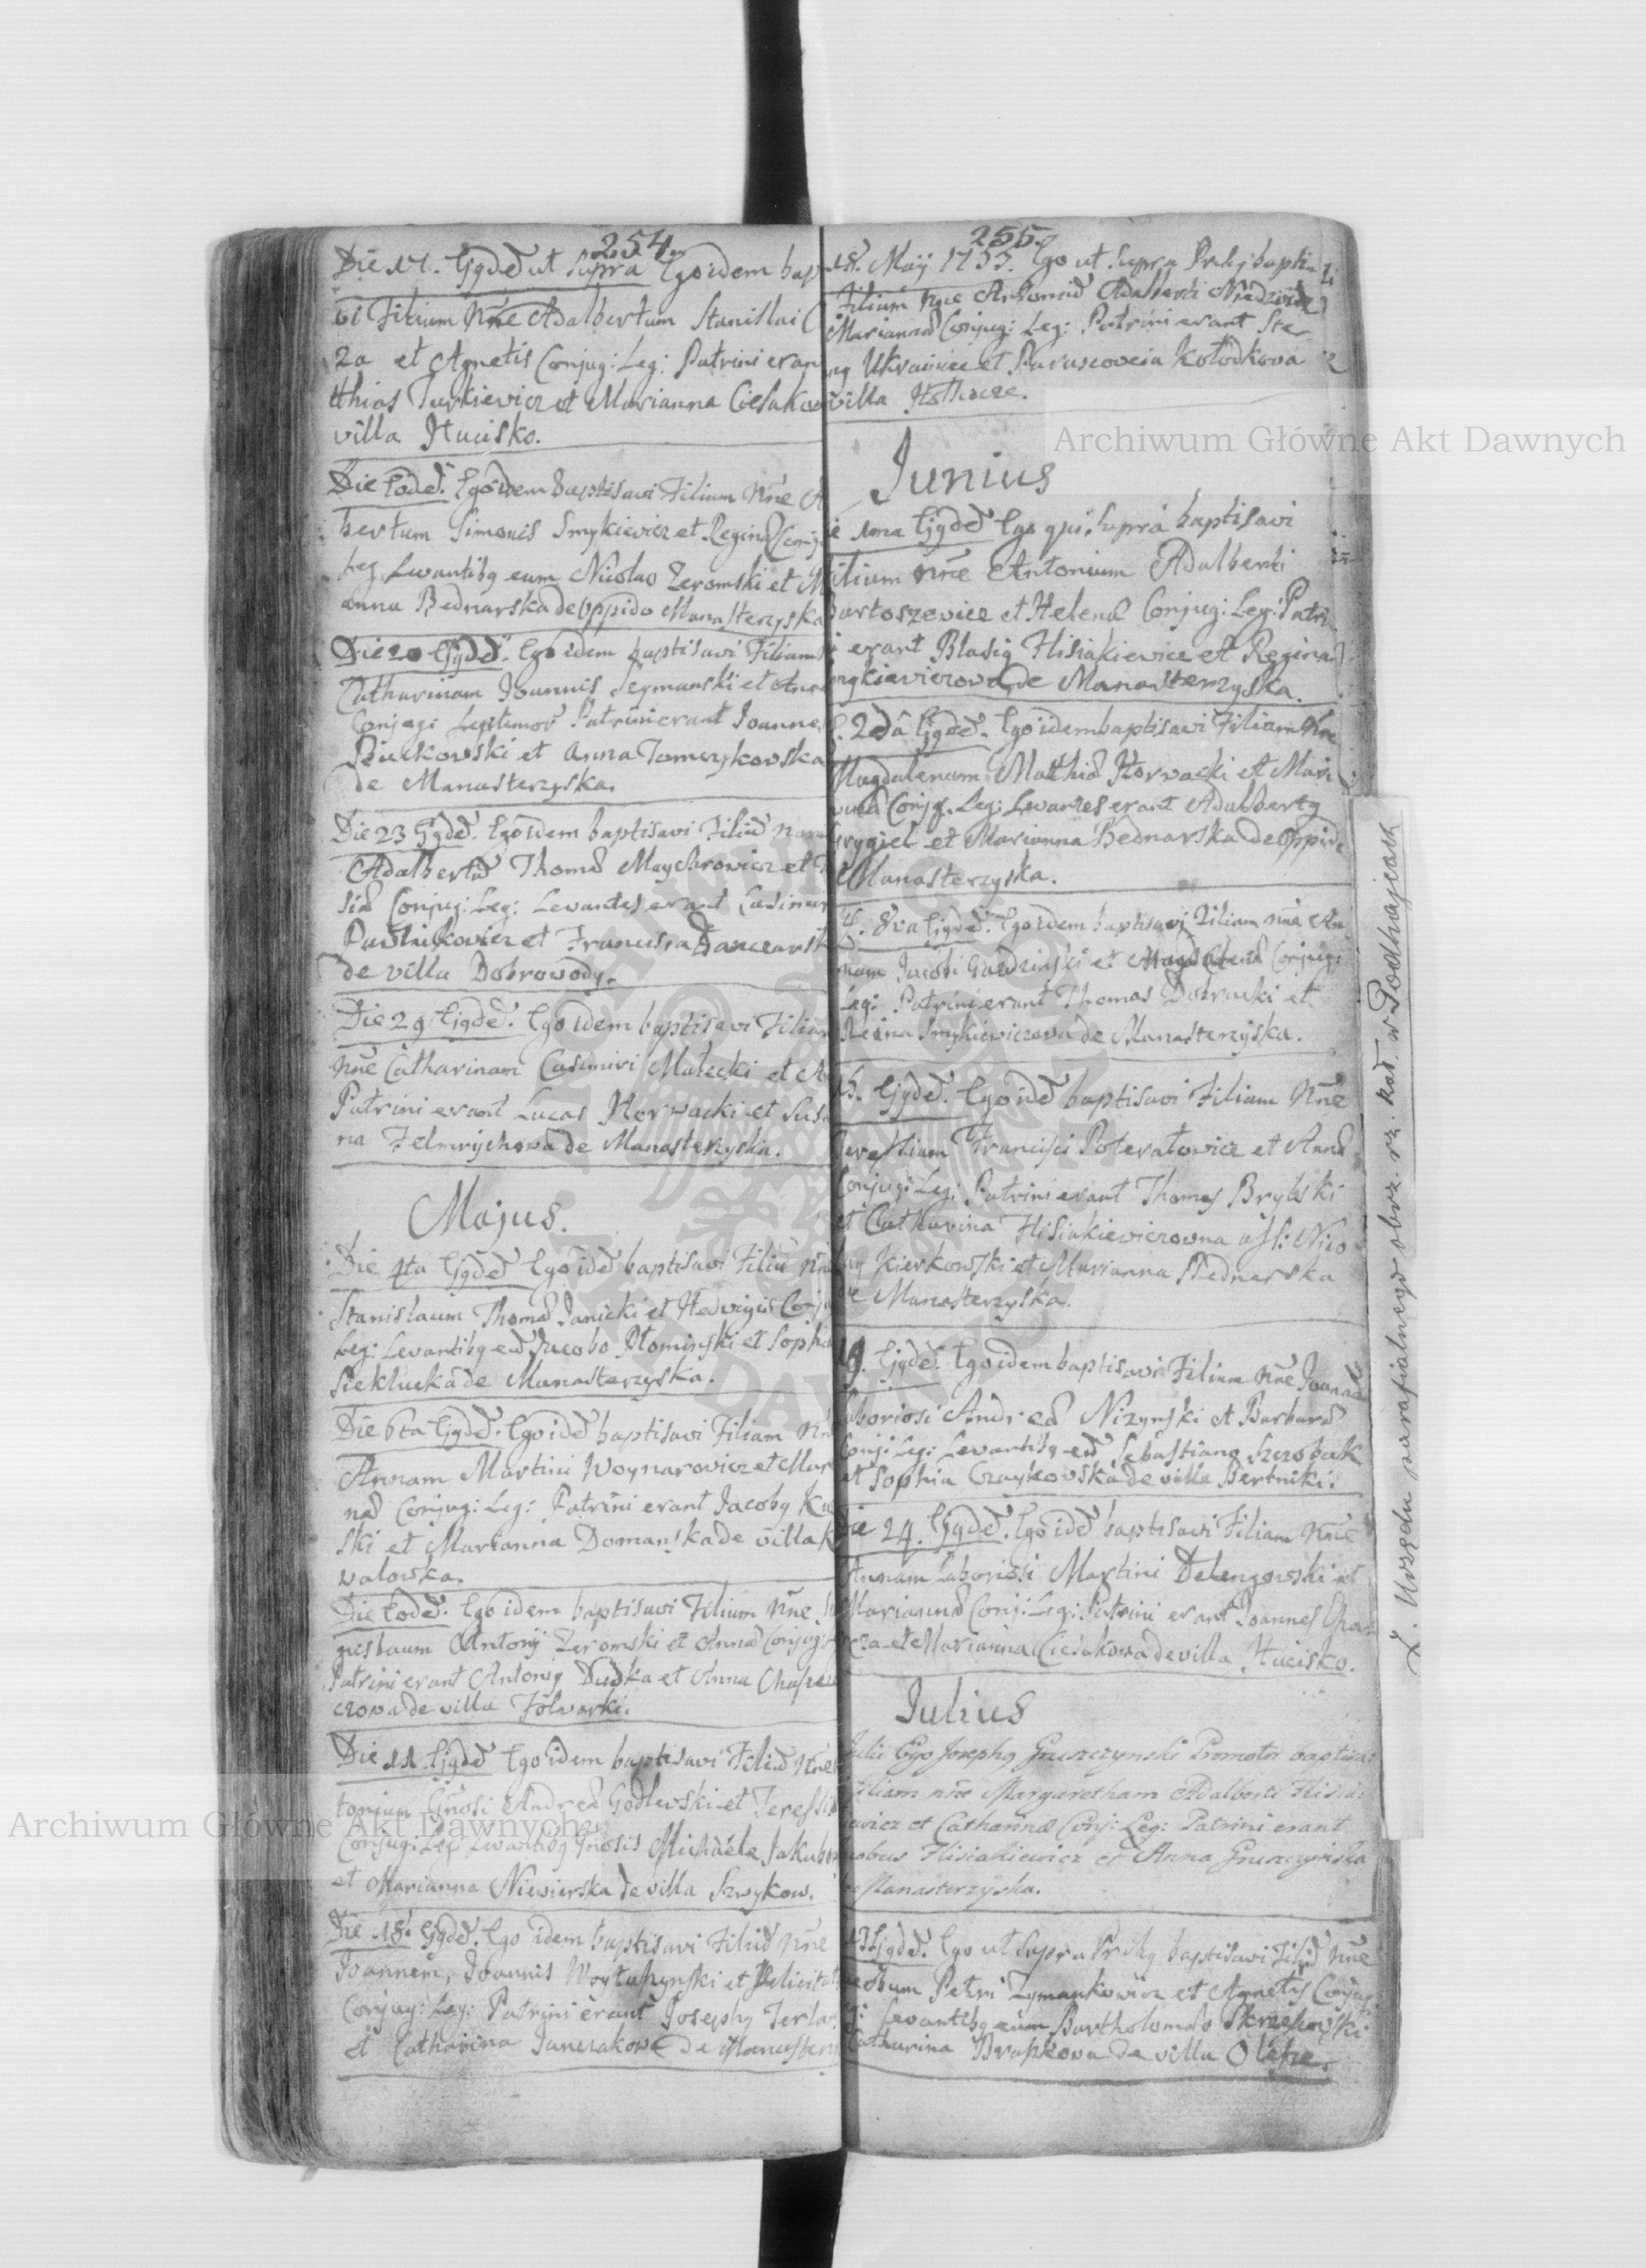 254.
Die 17. Ejqdē ut supra Ego idem bap
vi Filium Nñe Adalbertum Stanislai C
za et Agnetis Conjug: Leg: Patrini eran
tthias Turkiewicz et Marianna Ciesakow
villa Hucisko.
Die Eodē. Ego idem baptisavi Filium Nñe A
bertum Simonis Smykiewicz et Reginæ Conj
Leg. Levantibq eum Nicolao Zeromski et M
anna Bednarska de Oppido Manasterzyska
Die 20 Ejqdē. Ego idem baptisavi Filiam
Catharinam Joannis Szymanski et Ann
Conjug: Legitimor Patrini erant Joannes
Bielkowski et Anna Tomczykowska
de Manasterzyska.
Die 23 Ejqdē. Ego idem baptisavi Filiū Nom
Adalbertū Thomæ Maychrowicz et
siæ Conjug: Leg: Levantes erant Casimir
Pawlikowicz et Francisca
de villa Dobrowody.
Die 29 Ejqdē. Ego idem baptisavi Filiam
Nñe Catharinam Casimiri Małecki et A
Patrini erant Lucas Horwacki et Susa
na Felmrychowa de Manasterzyska.
Majus.
Die 4ta Ejqdē Ego idē baptisavi Filiū Nñe
Stanislaum Thomæ Janicki et Hedvigis Conju
Leg: Levantibq eū Jacobo Słominski et Sophia
Siekluckà de Manasterzyska.
Die 6ta Ejqdē. Ego idē baptisavi Filiam Nñ
Annam Martini Woynarowicz et Mar
næ Conjug: Leg: Patrini erant Jacobq Ku
ski et Marianna Domanska de villa K
walowka.
Die Eodē. Ego idem baptisavi Filium Nñe
gneslaum Antonij Zeromski et Annæ Conjug:
Patrini erant Antoniq Dudka et Anna
czowa de villa Folwarki.
Die 11. Ejqdē Ego idem baptisavi Filiū Nñe
tonium Gñosi Andreæ Godlewski et Teressiæ
Conjug: Leg: Levantibq Gñosis Michaële Jakubow
et Marianna Niewierska de villa Szwykow.
Die 18. Ejqdē. Ego idem baptisavi Filiū Nñe
Joannem, Joannis Woytaszynski et Felicitat
Conjug: Leg: Patrini erant Josephq
et Catharina Janczakowa de Manasterz
255.
18. Maij 1755. Ego ut supra Prhq bapti-
Filium Nñe Antoniū Adalberti
Mariannæ Conjug: Leg: Patrini erant Ste-
nq Ukrainiec et Parascoveia Kołodkowa
villa Hołhocze.
Junius
e 1ma Ejqdē Ego qui supra baptisavi
ilium Nñe Antonium Adalberti
artoszewicz et Helenæ Conjug: Leg: Patri
i erant Blasiq Hisiakiewicz et Regina
mykiewiczowa de Manasterzyska.
2dâ Ejqdē. Ego idem baptisavi Filiam Nñe
Magdalenam Matthiæ Horwacki et Mari
annæ Conjg. Leg: Levantes erant Adalbertq
rygiel et Marianna Bednarska de Oppido
Manasterzyska.
8va Ejqdē. Ego idem baptisavi Filiam Nñe An
nam Jacobi et Magdalenæ Conjug:
Leg: Patrini erant Thomas Dobracki et
Regina Smykiewiczowa de Manasterzyska.
15. Ejqdē. Ego idē baptisavi Filiam Nñe
Teressiam Francisci Poterałowicz et Annæ
Conjug: Leg: Patrini erant Thomas Brylski
et Catharina Hisiakiewiczowna asst: Nico
laq Kierkowski et Marianna Bednarska
de Manasterzyska.
19. Ejqdē. Ego idem baptisavi Filium Nñe Joannem
aboriosi Andreæ Nizynski et Barbaræ
Conj: Leg: Levantibq eū Sebastiano Szczobak
et Sophia Czaykowska de villa Bertniki.
Die 24. Ejqdē. Ego idē baptisavi Filiam Nñe
Annam Laboriosi Martini Delengowski et
Mariannæ Conj: Leg: Patrini erant Joannes
cza et Marianna Ciesakowa de villa Hucisko.
Julius
Julii Ego Josephq Gruszczynski Promotor baptisa-
Filiam nñe Margaretham Adalberti Hisia-
kiewicz et Catharinæ Conj: Leg: Patrini erant
acobus Hisiakiewicz et Anna Gruszczynska
de Manasterzyska.
13 Ejqdē. Ego ut supra Prhq baptisavi Filiū Nñe
acobum Petri Zymankowicz et Agnetis Conjug
g: Levantibq eum Bartholomæo Skrzeszowski
Catharina Brapkowa de villa Olesze.
Z. Urzędu parafialnego obrz. rz. kat. w Podhajcach
Archiwum Główne Akt Dawnych
Archiwum Główne Akt Dawnych
ARCHIWUM GŁÓWNE AKT DAWNYCH